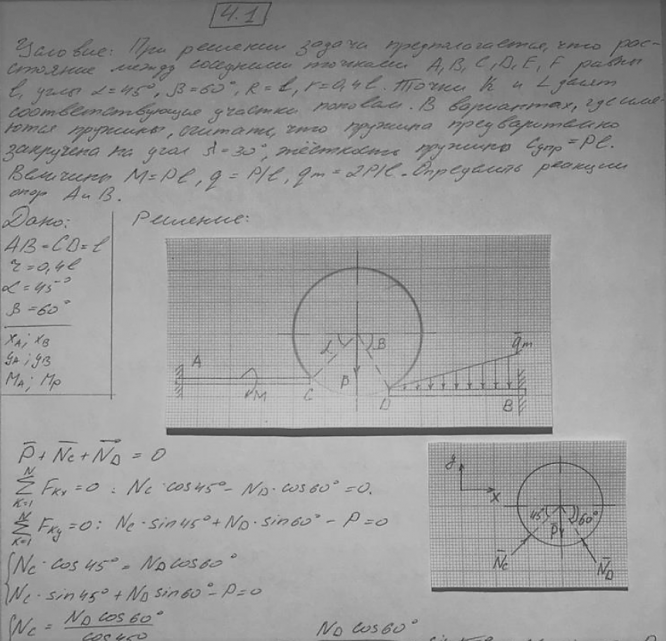 4.1
Условие: При решении задачи предполагается, что рас-
стояние между соседними точками A, B, C, D, E, F равны
l, углы α=45°, β=60°, R=l, r=0,4l. Точки K и L делят
соответствующие участки пополам. В вариантах, где име-
ются пружины, считать, что пружина предварительно
закручена на угол =30°, жёсткость пружины Cупр=Pl.
Величины M=Pl, q=P/l, qm=2P/l. Определить реакции
опор A и B.
Дано:
Решение:
AB=CD=l
r=0,4l
α=45°
β=60°
xA; xB
yA; yB
MA; Mр
A
M
C
α
β
P
D
B
q̄m
P̄ + N̄c + N̄D = 0
N
Σ FKx=0 : Nc·cos45° - ND·cos60°=0.
K=1
N
Σ FKy=0: Nc·sin45°+ND·sin60°-P=0
K=1
{Nc·cos45° = ND cos60°
Nc·sin45°+ND sin60°-P=0
{Nc = ND cos60°
cos45°
y
x
45°
60°
P̄
N̄c
N̄D
ND cos60°